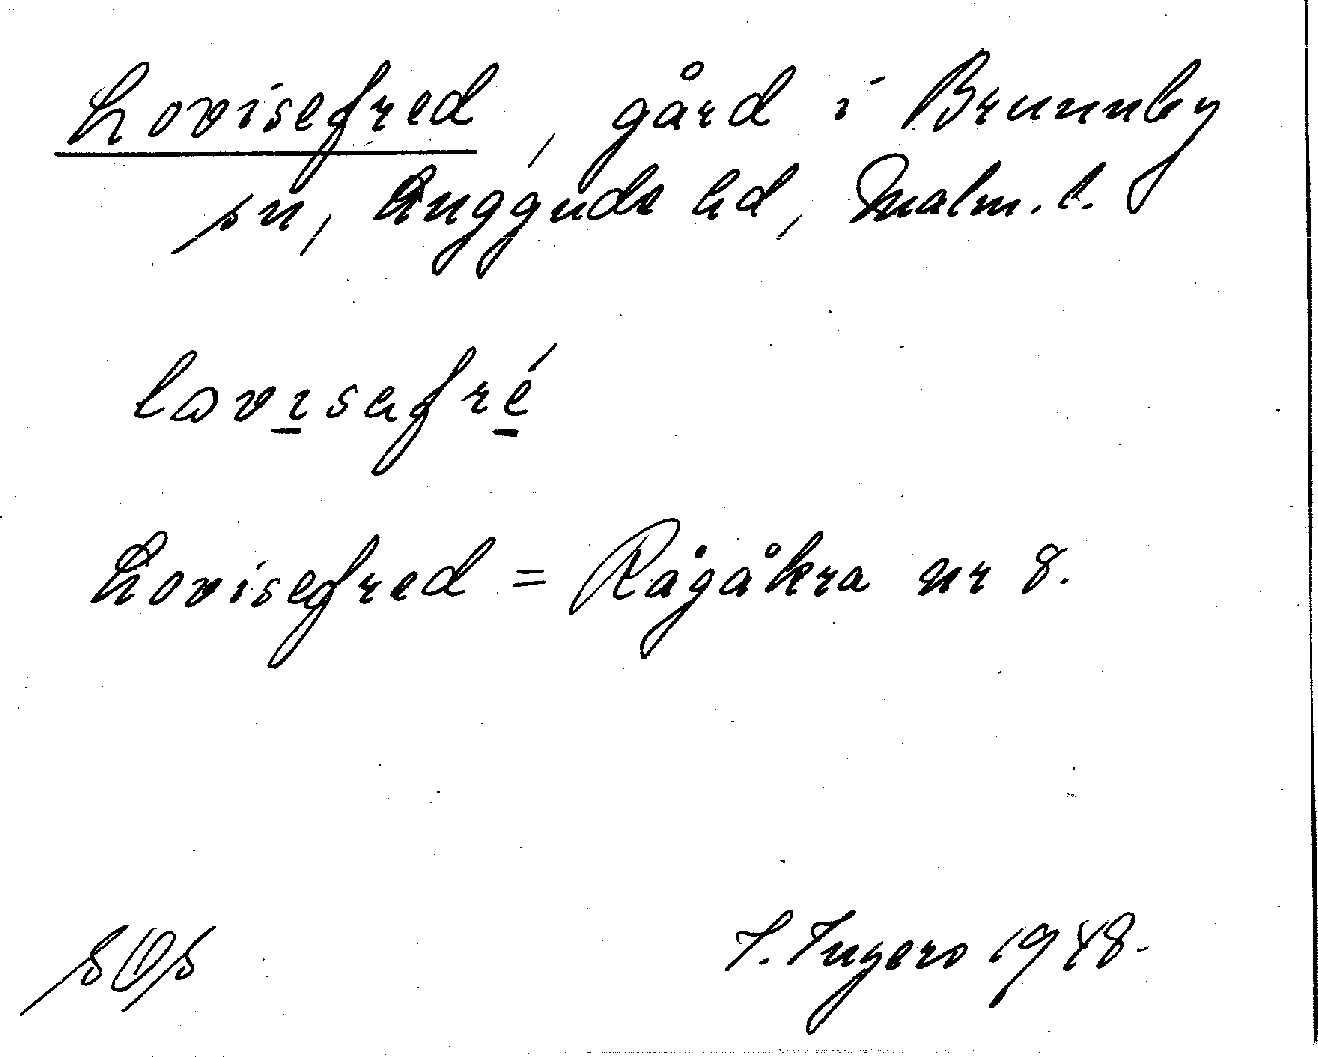 Lovisefred, gård i Brunnby
sn, Luggude hd, Malm. l.
lovisefré
Lovisefred = Rågåkra nr 8.
SOS
I. Ingers 1948.